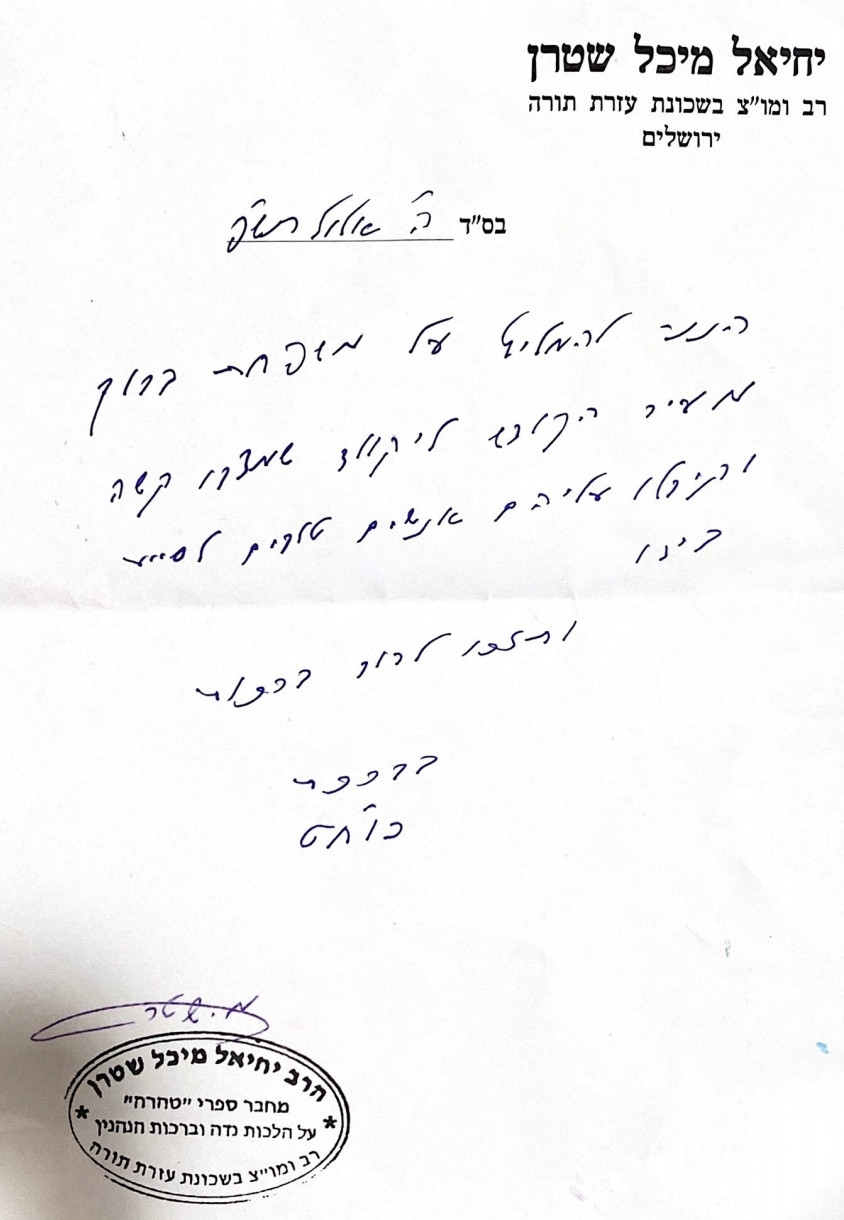 יחיאל מיכל שטרן
רב ומו"צ בשכונת עזרת תורה
ירושלים
בס"ד ה' אלול תש"פ
הננה להמליץ על משפחת ברוך
מעיר הקודש שמצבו קשה
וקיבלו עליהם אנשים לסייע
בידו
ותזכו לרוב ברכות
בברכת
כו"חט
מ. שטר
הרב יחיאל מיכל שטרן
מחבר ספרי "טהרה"
* על הלכות נדה וברכות הנהנין *
רב ומו"צ בשכונת עזרת תורה